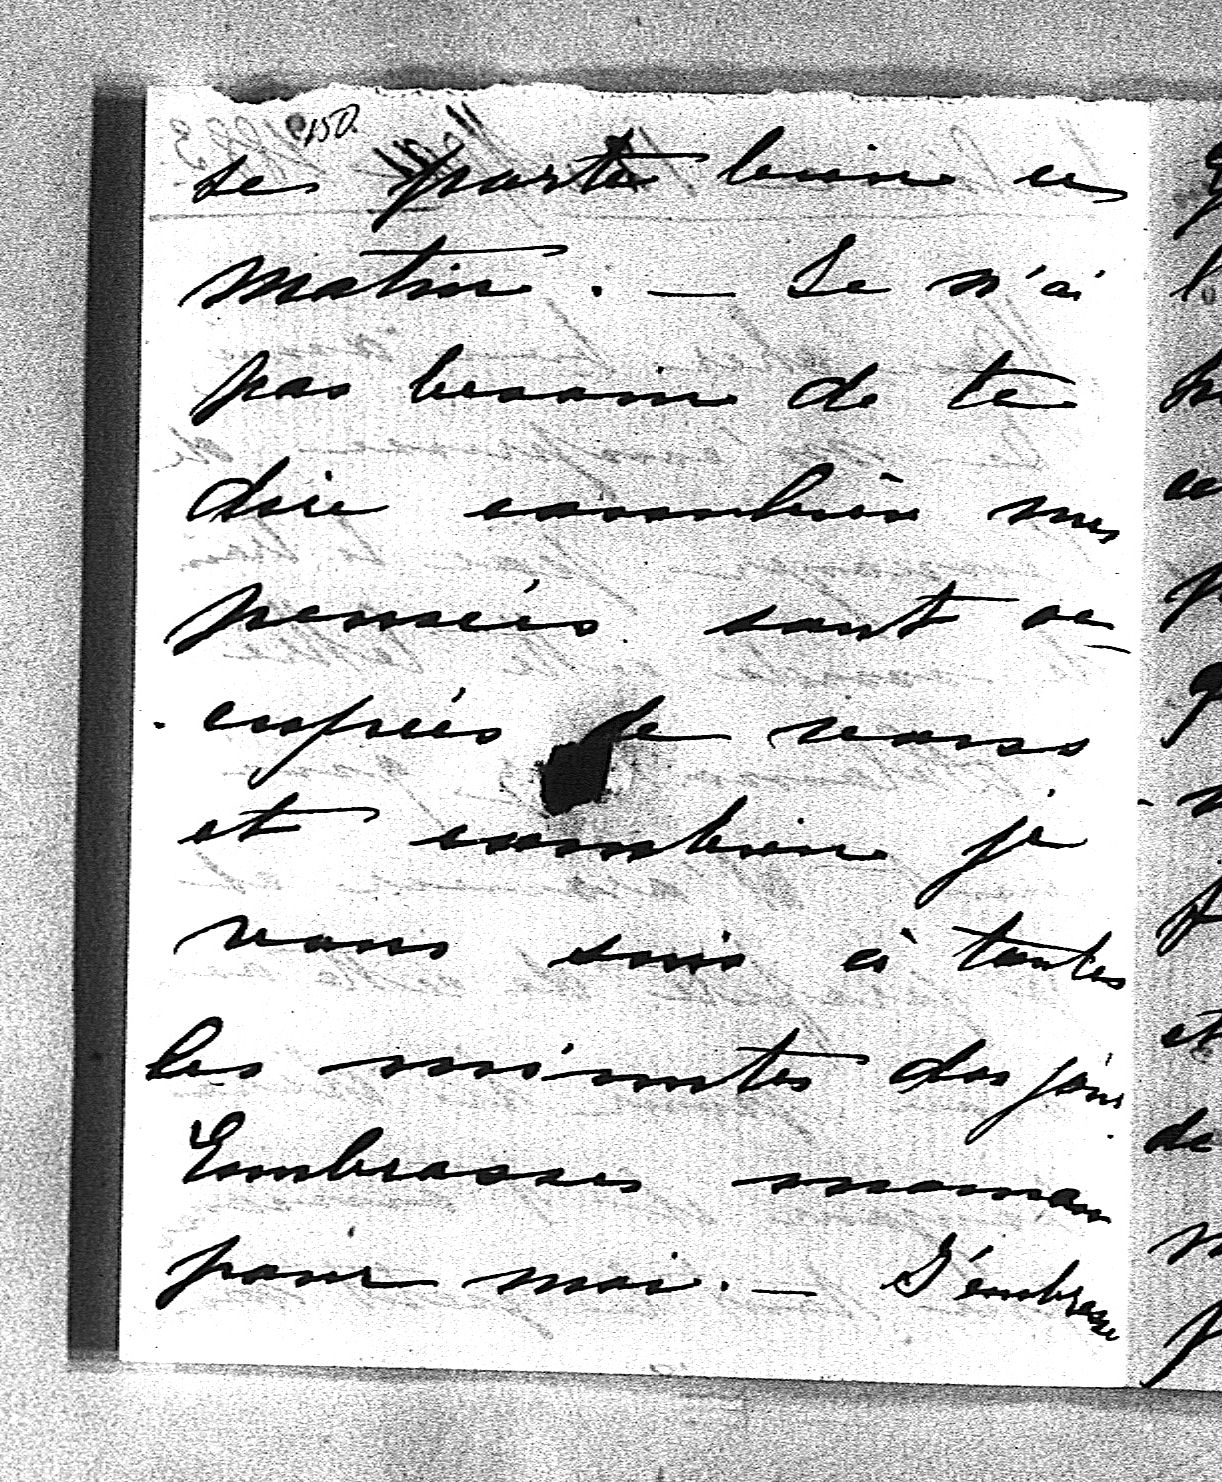 150.
se porte bien ce
matin. — Je n'ai
pas besoin de te
dire combien mes
pensées sont oc-
cupées de vous
et combien je
vous suis à toutes
les minutes du jour.
Embrasses maman
pour moi. — J'embrasse